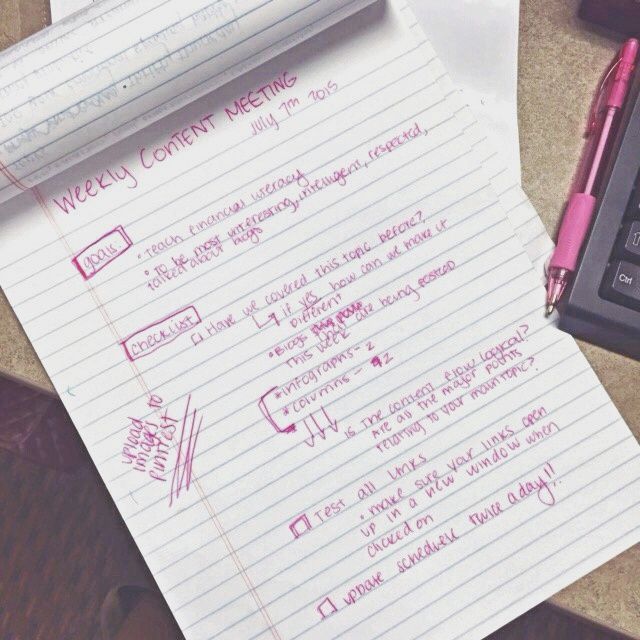 WEEKLY CONTENT MEETING
July 7TH 2015
goals:
• Teach financial literacy
• To be most interesting, intelligent, respected,
talked about blogs
checklist
Have we covered this topic before?
if yes how can we make it
different
• Blogs
this week are being posted
• infographs - 2
• columns - 2
Is the content flow logical?
Are all the major points
relating to your main topic?
upload
images to
Pintrest
Test all links
• make sure your links open
up in a new window when
clicked on
update schedule twice a day!!